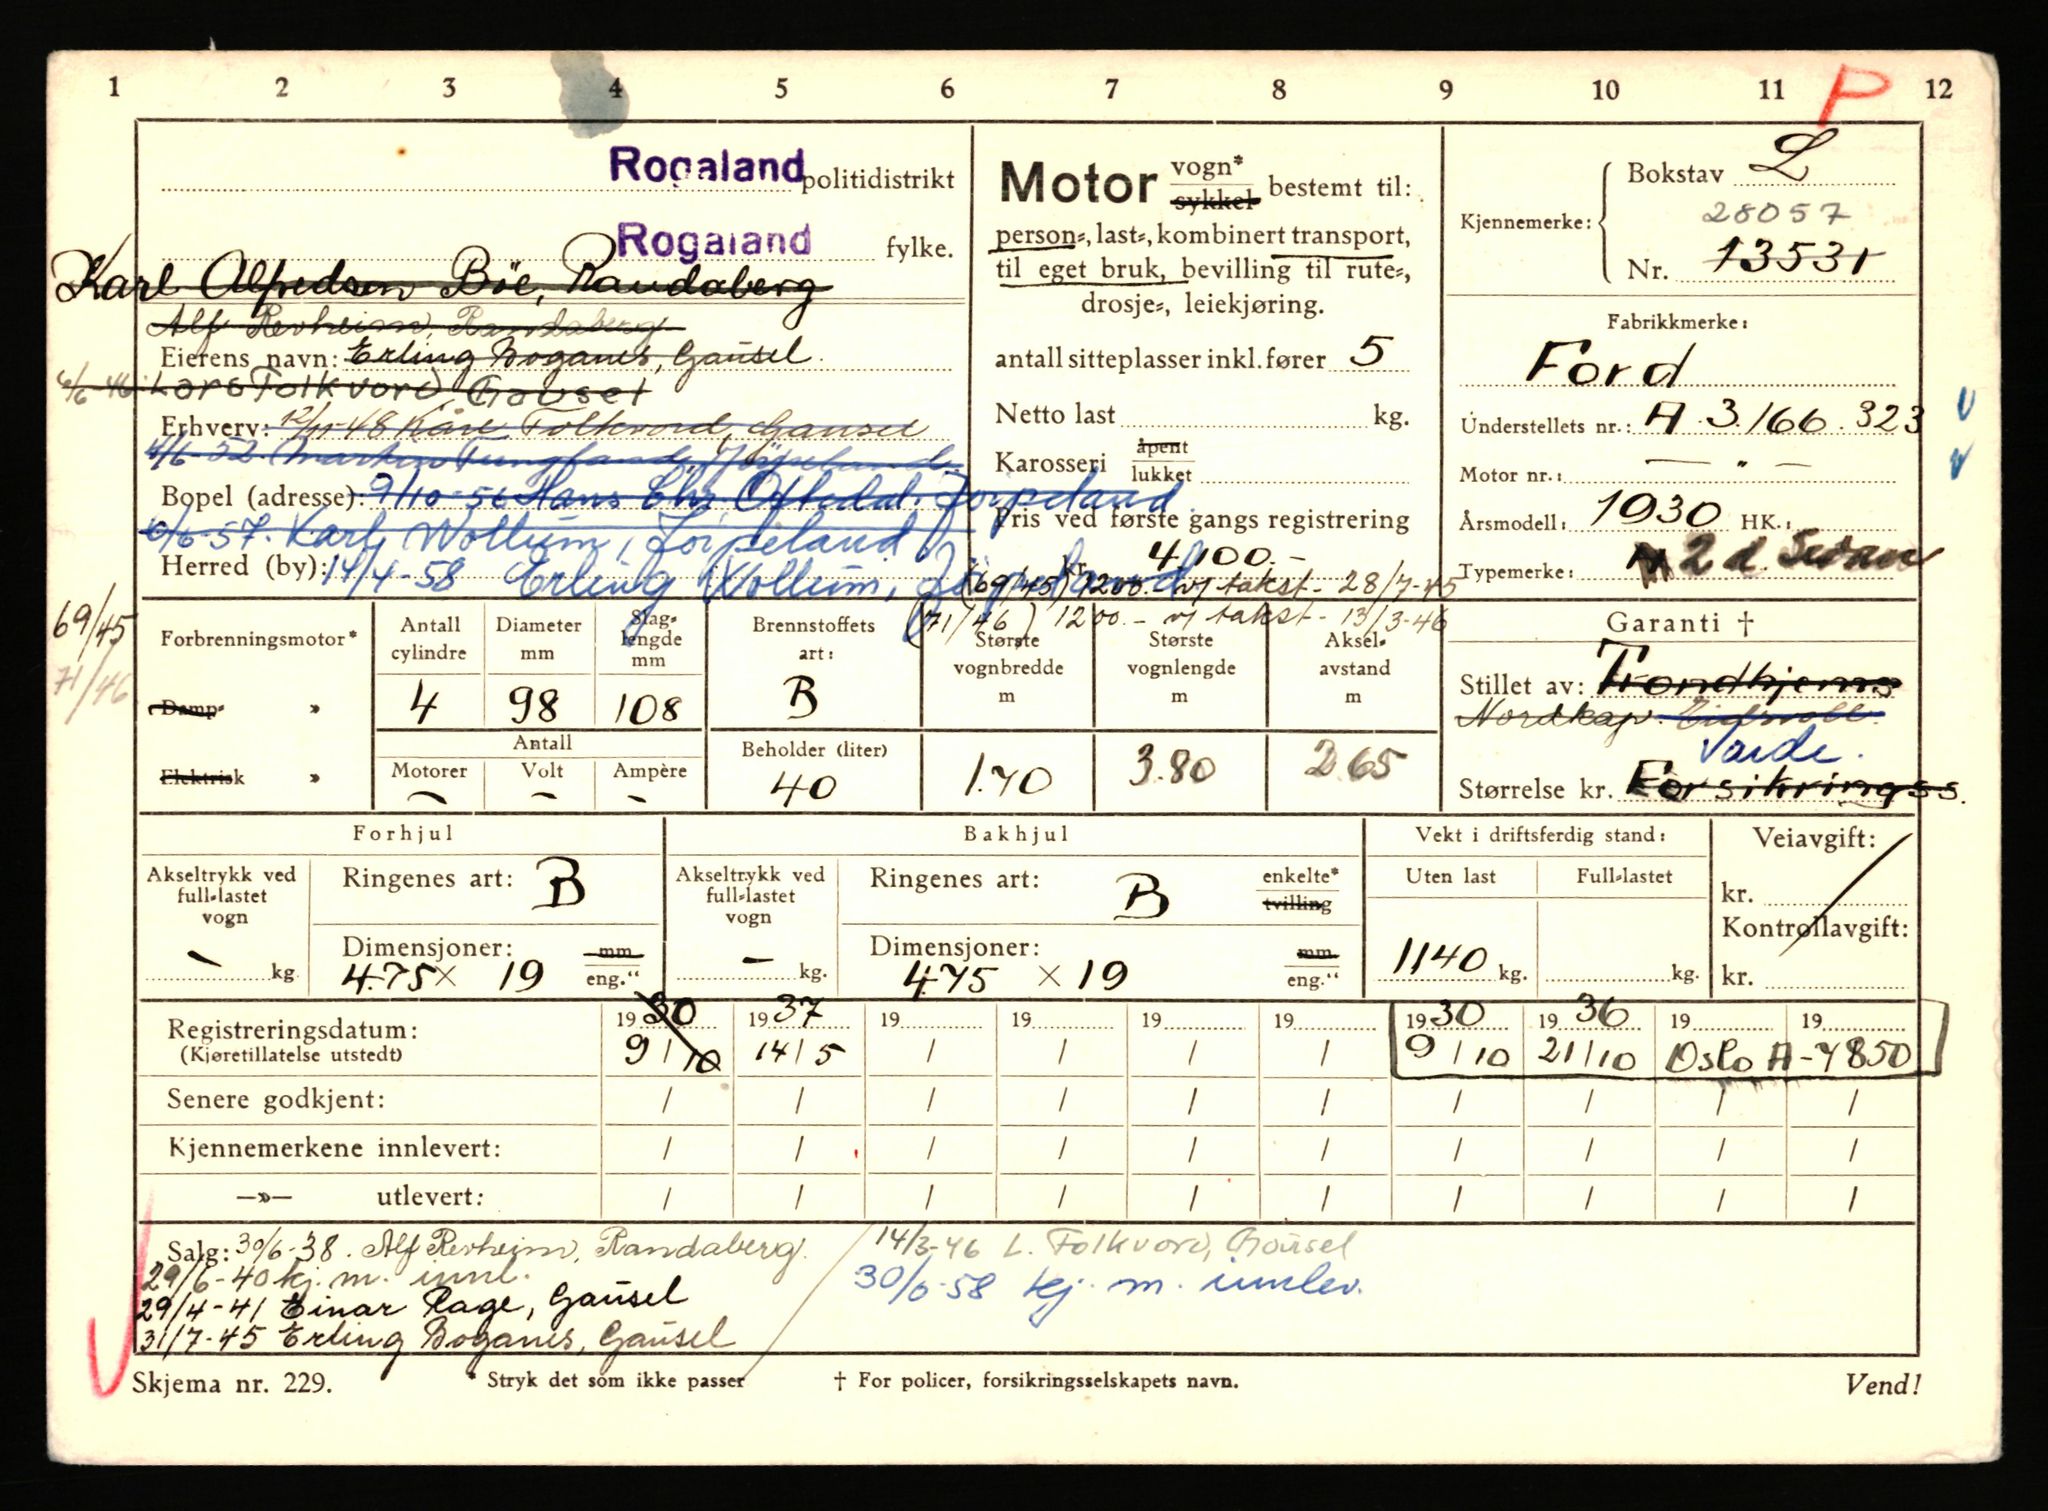 1 2 3 4 5 6 7 8 9 10 11 P 12
Rogaland politidistrikt
Rogaland fylke.
Karl Alfredsen Böe, Randaberg
Alf Revheim, Randaberg
Eierens navn: Erling Boganes, Gausel
6/6-46 Lars Folkvord Gausel
Erhverv: 12/11-48 Kåre Folkvord, Gausel
4/6-52 Jörpeland
Bopel (adresse): 9/10-56 Hans Chr. Oftedal. Jörpeland
6/6-57. Karl Wollum, Jörpeland
Herred (by): 14/4-58 Erling Wollum, Jörpeland
Motor vogn* sykkel bestemt til:
person-, last-, kombinert transport,
til eget bruk, bevilling til rute-,
drosje-, leiekjøring.
antall sitteplasser inkl. fører 5
Netto last kg.
Karosseri åpent lukket
Pris ved første gangs registrering
kr. 4100.-
(69/45) 1200.- v/ takst - 28/7-45
(71/46) 1200.- v/ takst - 13/3-46
Kjennemerke: Bokstav L
28057
Nr. 13531
Fabrikkmerke:
Ford
Understellets nr.: A 3.166.323
Motor nr.: — " —
Årsmodell: 1930 HK.:
Typemerke: 2 d. Sedan
69/45
71/46
Forbrenningsmotor*
Damp- »
Elektrisk »
Antall cylindre
4
Diameter mm
98
Slaglengde mm
108
Antall
Motorer –
Volt –
Ampère –
Brennstoffets art:
B
Beholder (liter)
40
Største vognbredde m
1.70
Største vognlengde m
3.80
Akselavstand m
2.65
Garanti †
Stillet av: Trondhjems
Nordkap. Eidsvoll.
Varde.
Størrelse kr. Forsikringss.
Forhjul
Akseltrykk ved full-lastet vogn
– kg.
Ringenes art: B
Dimensjoner: mm
4.75 × 19 eng."
Bakhjul
Akseltrykk ved full-lastet vogn
– kg.
Ringenes art: B enkelte* tvilling
Dimensjoner: mm
4.75 × 19 eng."
Vekt i driftsferdig stand:
Uten last Full-lastet
1140 kg. kg.
Veiavgift:
kr.
Kontrollavgift:
kr.
Registreringsdatum: 19 30 19 37 19 19 19 19 19 30 19 36 19 19
(Kjøretillatelse utstedt) 9/10 14/5 / / / / 9/10 21/10 Oslo A-7850
Senere godkjent: / / / / / / / / / /
Kjennemerkene innlevert: / / / / / / / / / /
—»— utlevert: / / / / / / / / / /
Salg: 30/6-38. Alf Revheim, Randaberg.
29/6-40 kj. m. innl.
29/4-41 Einar Rage, Gausel
31/7-45 Erling Boganes, Gausel
14/3-46 L. Folkvord, Gausel
30/6-58 kj. m. innlev.
Skjema nr. 229.
* Stryk det som ikke passer
† For policer, forsikringsselskapets navn.
Vend!